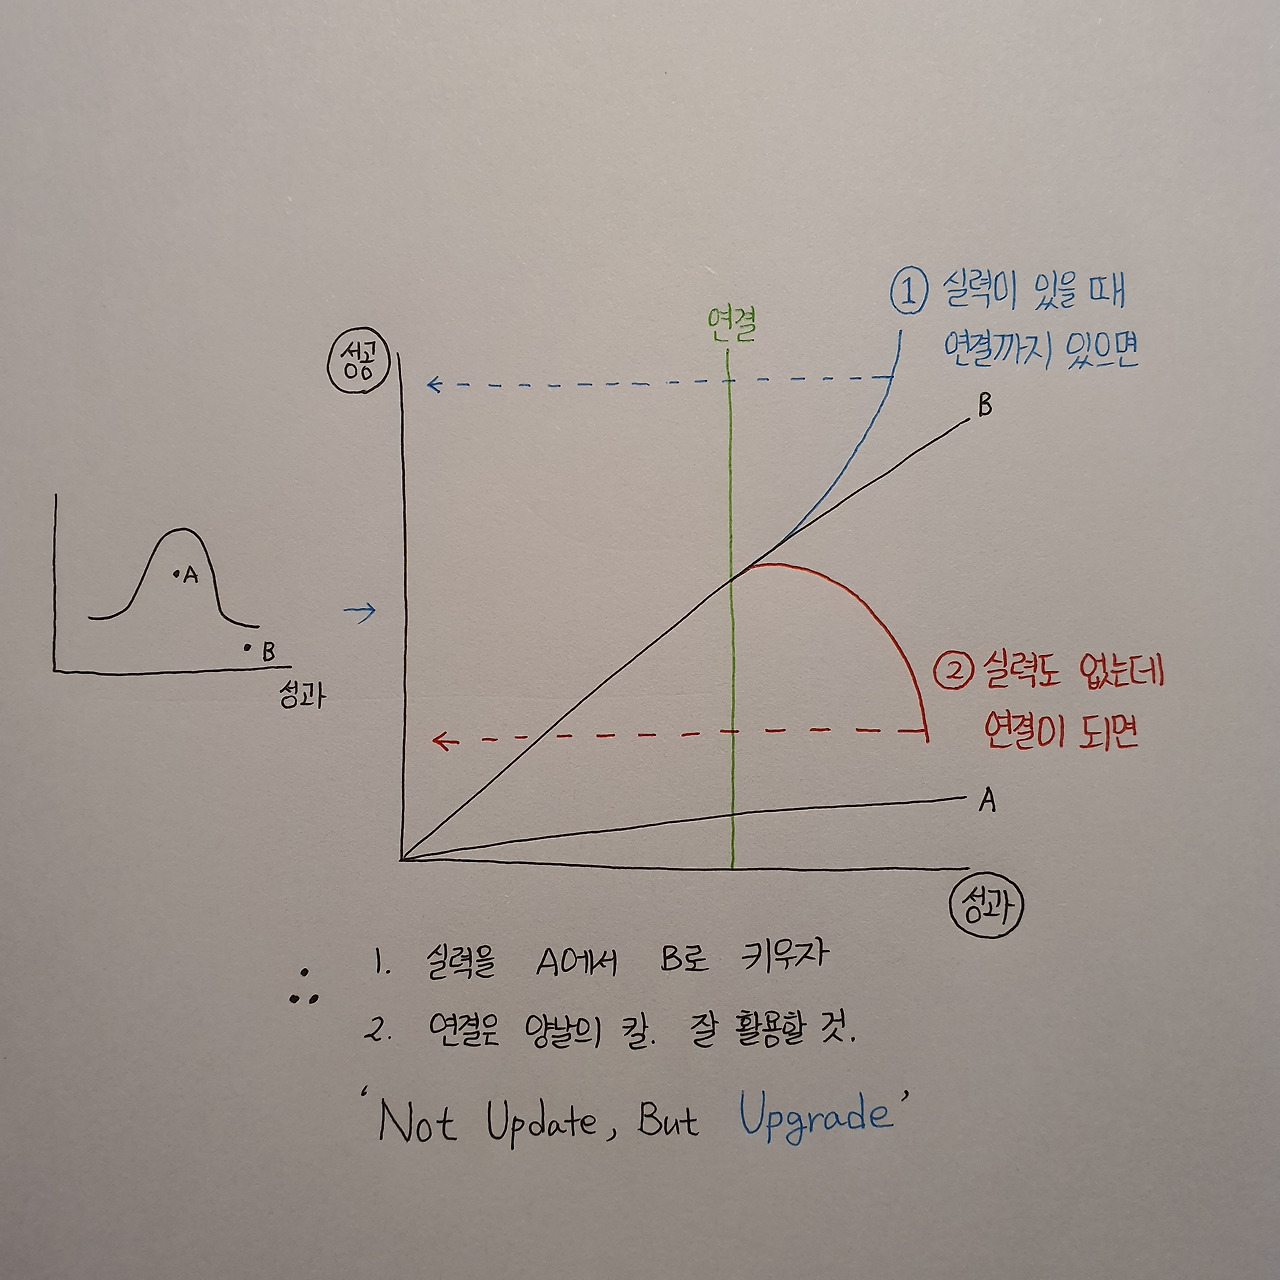 ① 실력이 있을 때
연결까지 있으면
연결
성공
B
A
B
성과
② 실력도 없는데
연결이 되면
A
성과
∴ 1. 실력을 A에서 B로 키우자
2. 연결은 양날의 칼. 잘 활용할 것.
'Not Update, But Upgrade'